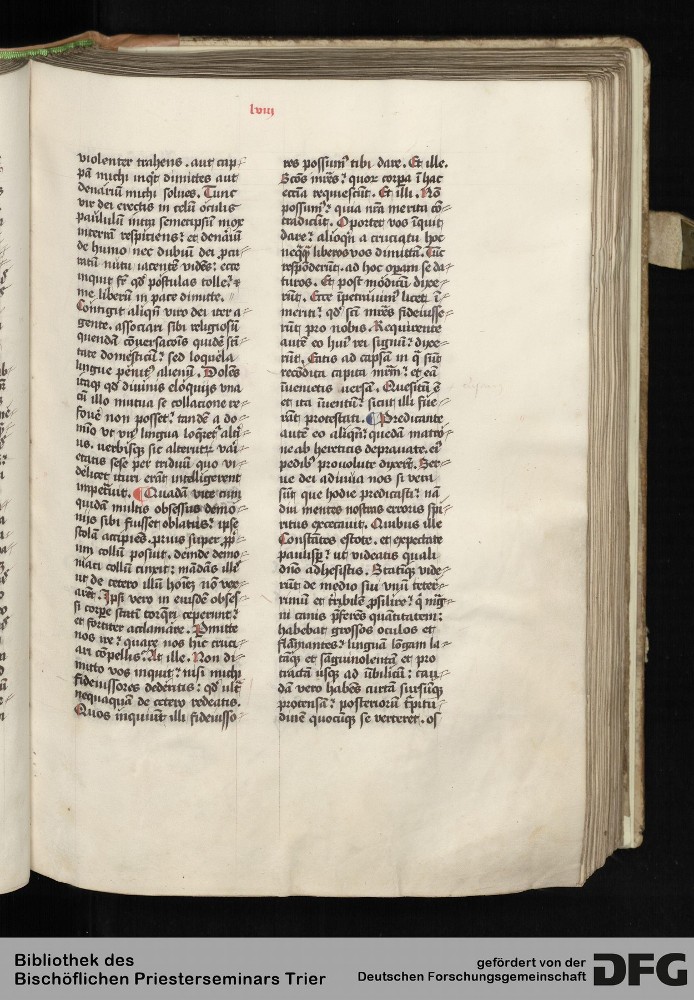 lviij
violenter trahens. aut cap⸗
pā michi inq̄t dimittes aut
denariū michi solues. Tunc
vir dei erectis in celū oculis
paululū intra semetipsū mox
interrā respiciens? et denariū
de humo nec dubiū dei pro⸗
ratū nutu iacentē vidēs: ecce
inquit fr̄ qd̄ postulas tolle? ⁊
me liberū in pace dimitte.
Contigit aliqn̄ viro dei iter a⸗
gente. associari sibi religiosū
quendā cōversacōis quidē sti
tate domesticū? sed loquela
lingue penit⁹ alienū. Dolēs
itaq̄ꝫ qd̄ diuinis eloquijs vna
cū illo mutua se collacione re⸗
fouē non posset? tandē a do⸗
mīo ut vt̄ lingua loq̄ret̄ alti⸗
us. verbisq̄ꝫ sic alterut̄ vai⸗
etatis sese per triduū quo vi⸗
delicet ituri erāt intelligerent
impet̄uit. ¶ Quadā vice cum
quidā multis obsessus demo⸗
nijs sibi fuisset oblatus? ipse
stolā accipiēs. prius super pp̄⸗
um collū posuit. deinde demo⸗
niaci collū cinxit: mādās ill̄
ut de cetero illū hoīeꝫ nō vex⸗
arēt. Ipsi vero in eiusdē obses⸗
si corpe statī torq̄ri ceperunt?
et fortiter acclamare. Pmitte
nos ire? quare nos hic cruci⸗
ari cōpellis. At ille. Non di⸗
mitto vos inquit? nisi michi
fideiussores dederitis: qd̄ ult̄
nequaquā de cetero redeatis.
Quos inquiūt illi fideiusso⸗
res possum⁹ tibi dare. Et ille.
Sc̄os mr̄es? quor̄ corpa ī hac
ecc̄ia requiescūt. Et illi. Nō
possum⁹? quia nr̄a merita cō⸗
tradicūt. Oportet vos īquit
dare? alioqn̄ a cruciatu hoc
neq̄q̄ liberos vos dimittā. Tūc
respōderūt. ad hoc opam se da⸗
turos. Et post modicū dixe⸗
rūt. Ecce īpetrauim⁹ licet ī⸗
meriti? qd̄ sc̄i mr̄es fideiusse⸗
rūt pro nobis. Requirente
autē eo hui⁹ rei signū? dixe⸗
rūt. Eatis ad capsā in q̄ sūt
recōdita capita mr̄m? et eā
īuenietis uersā. Quesitū ē
et ita īuentū? sicut illi fue⸗
rāt protestati. ¶ Predicante
autē eo aliqn̄? quedā matro⸗
ne ab hereticis deprauate. ei⁹
pedib⁹ prouolute dixerūt. Ser⸗
ue dei adiuua nos si vera
sūt que hodie predicasti? nā
diu mentes nostras erroris spi⸗
ritus excecauit. Quibus ille
Constātes estote. et expectate
paulisp̄? ut videatis quali
dn̄o adhesistis. Statiq̄ꝫ vide⸗
rūt de medio sui vnū teter⸗
rimū et t̄ribilē psilire? q̄ mag⸗
ni canis pferēs quātitatem:
habebat grossos oculos et
flāmantes? linguā lōgam la⸗
tāq̄ꝫ et sāguinolentā et pro
tractā usq̄ꝫ ad ūbilicū: cau⸗
dā vero habēs curtā sursūq̄ꝫ
protensā? posteriorū t̄pitu⸗
dinē quocūq̄ꝫ se verteret. os⸗
Bibliothek des
Bischöflichen Priesterseminars Trier
gefördert von der
Deutschen Forschungsgemeinschaft
DFG